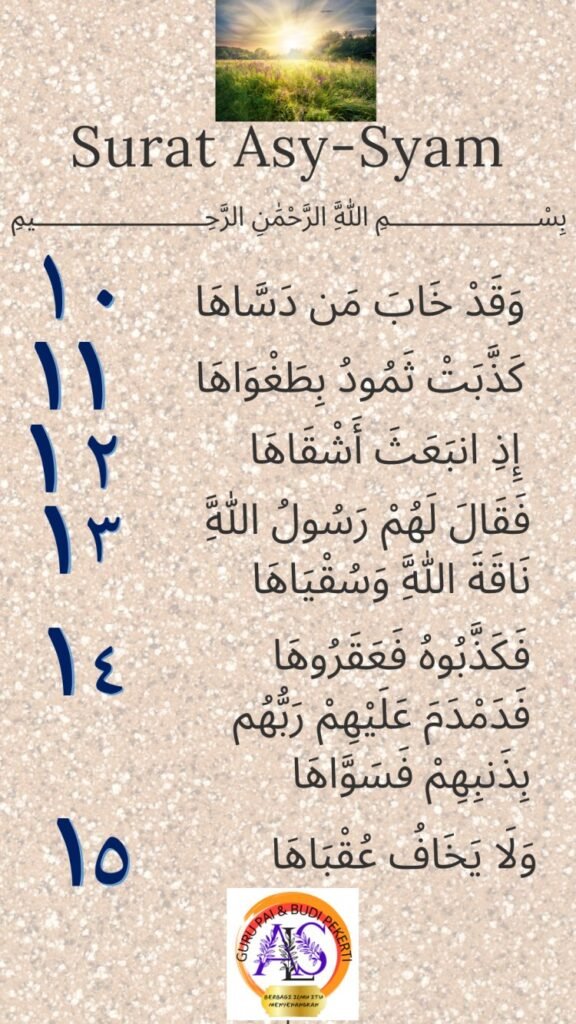 Surat Asy-Syam
بِسْــــــــــــمِ اللَّهِ الرَّحْمَٰنِ الرَّحِــــــــــــيمِ
وَقَدْ خَابَ مَن دَسَّاهَا ١٠
كَذَّبَتْ ثَمُودُ بِطَغْوَاهَا ١١
إِذِ انبَعَثَ أَشْقَاهَا ١٢
فَقَالَ لَهُمْ رَسُولُ اللَّهِ ١٣
نَاقَةَ اللَّهِ وَسُقْيَاهَا
فَكَذَّبُوهُ فَعَقَرُوهَا ١٤
فَدَمْدَمَ عَلَيْهِمْ رَبُّهُم
بِذَنبِهِمْ فَسَوَّاهَا
وَلَا يَخَافُ عُقْبَاهَا ١٥
GURU PAI & BUDI PEKERTI
ALS
BERBAGI ILMU ITU
MENYENANGKAN